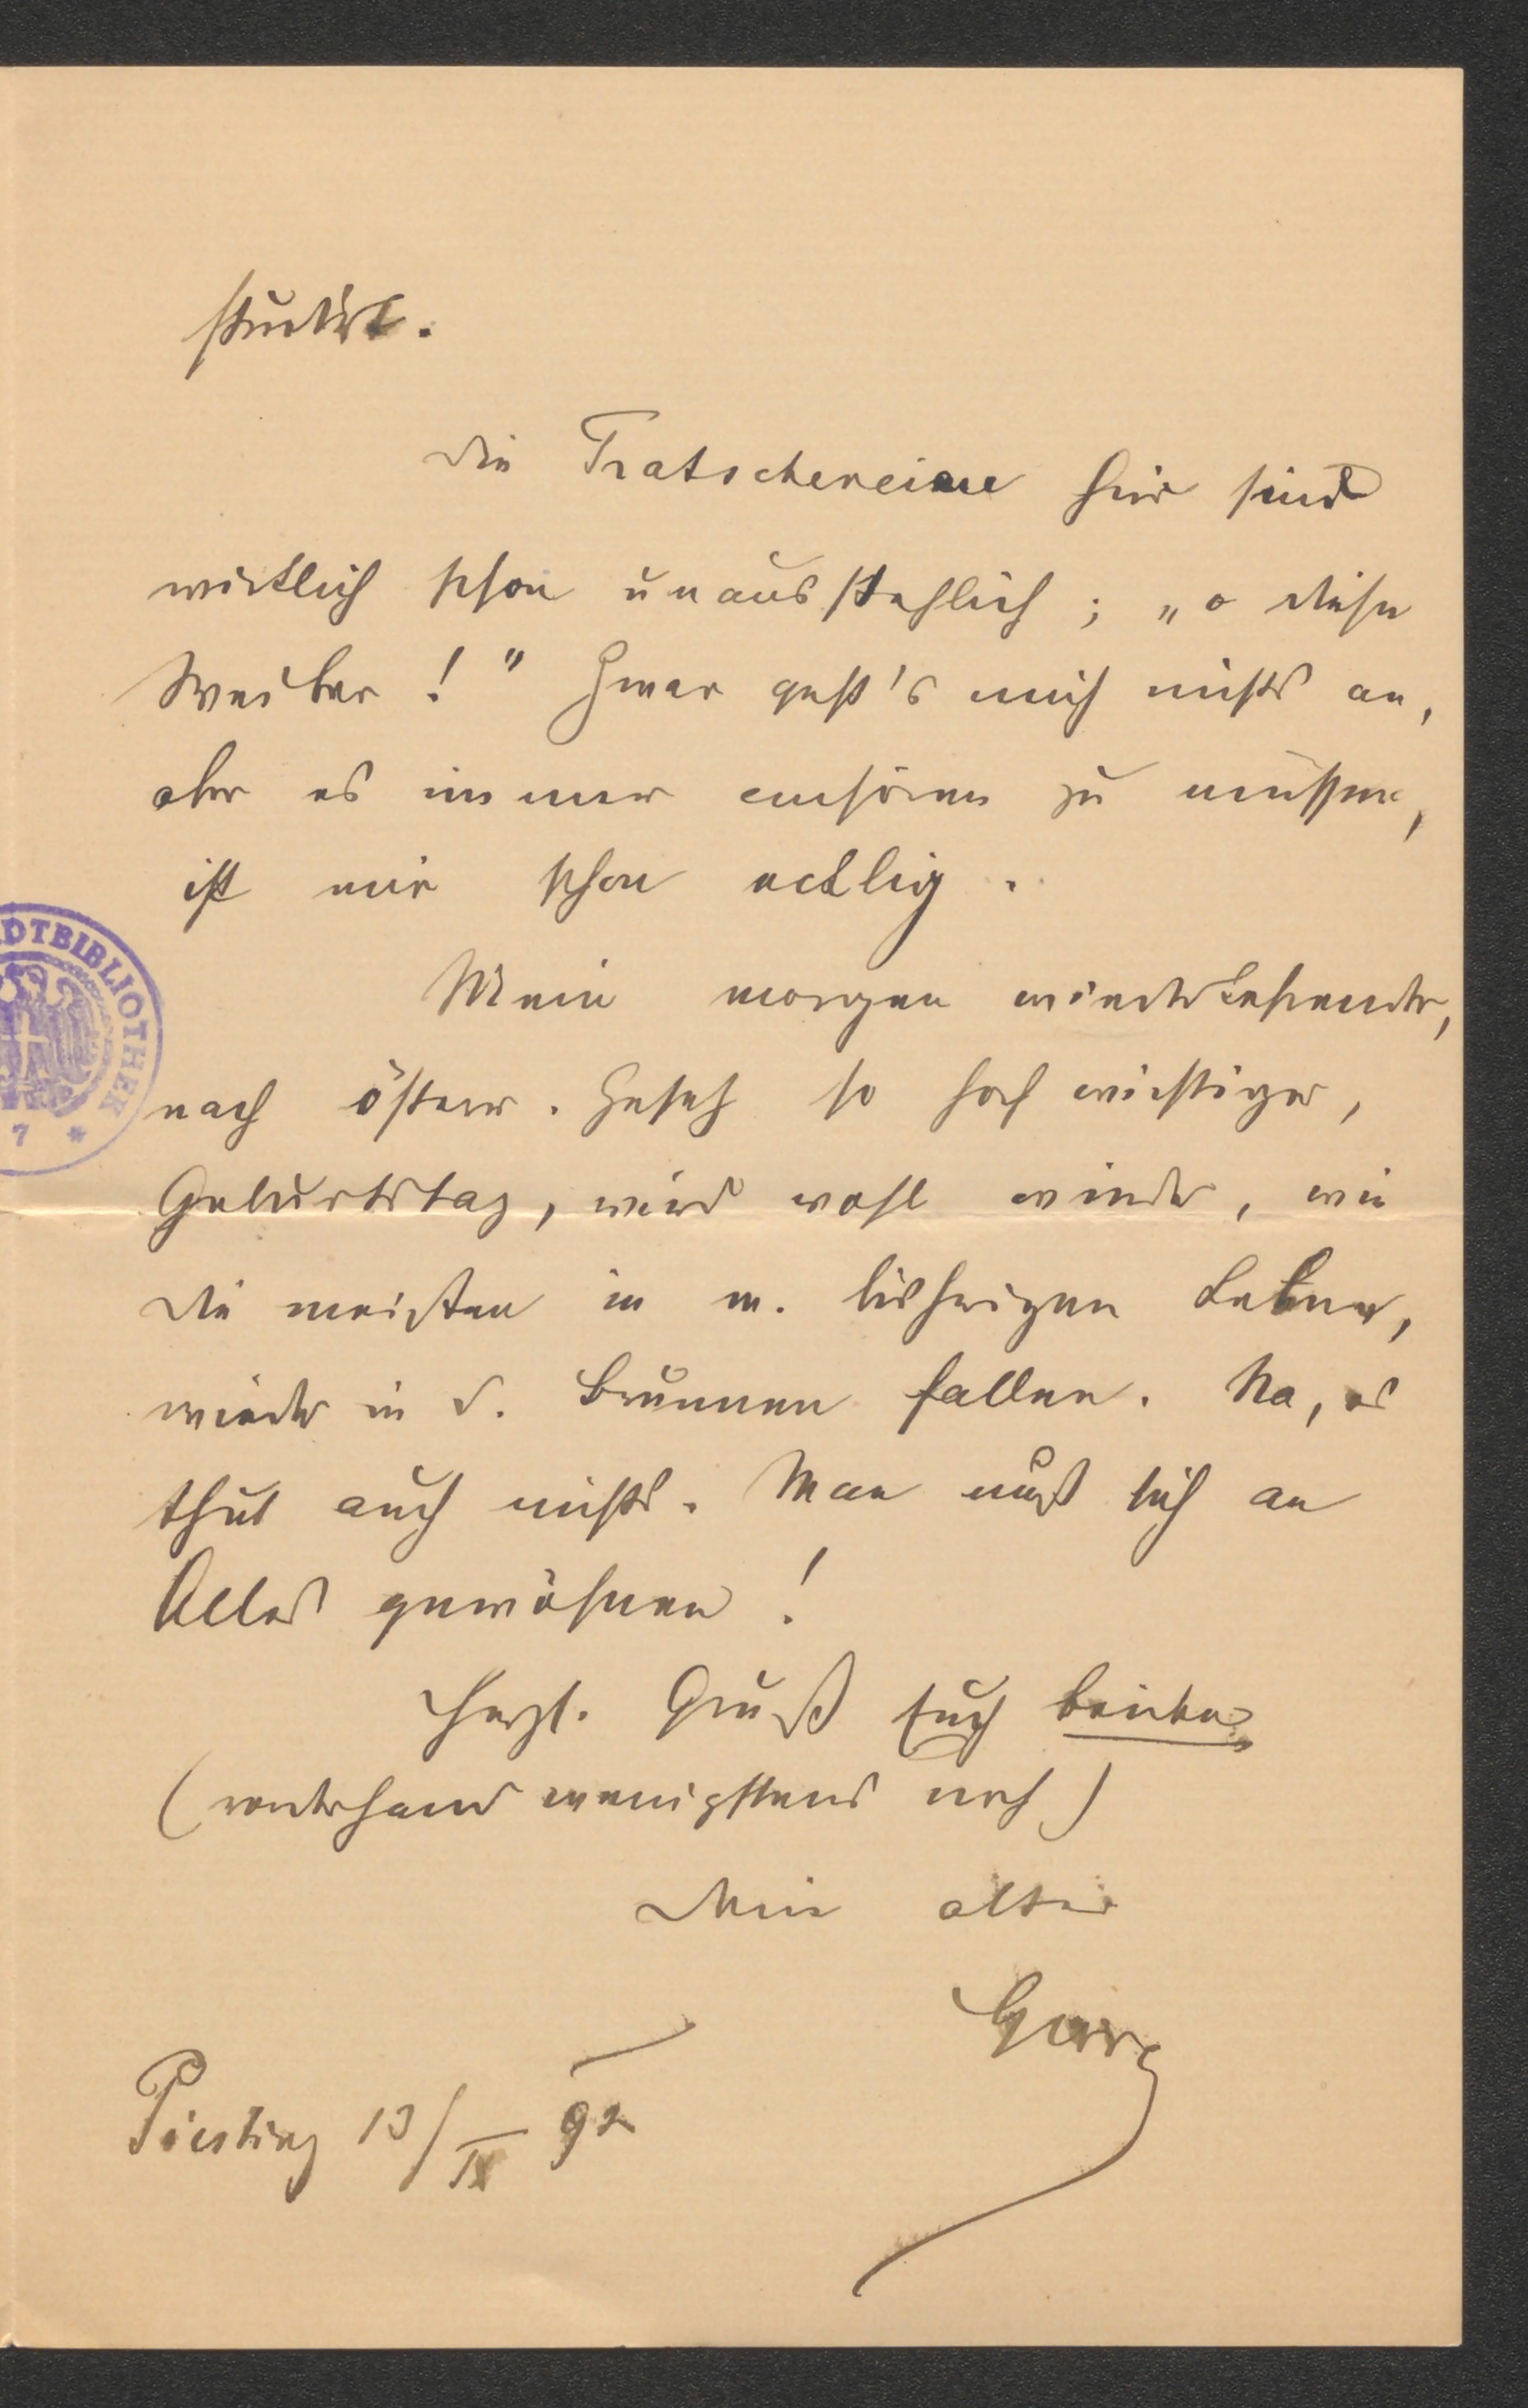 studirt.
Die Tratschereien hier sind
wirklich schon unausstehlich; „o diese
Weiber!" Zwar geht's mich nichts an,
aber es immer anhören zu müssen,
ist mir schon ecklig.
Mein morgen wiederkehrender,
nach österr. Gesetz so hoch wichtiger,
Geburtstag, wird wohl wieder, wie
die meisten in m. bisherigen Leben,
wieder in d. Brunnen fallen. Na, es
thut auch nichts. Man muß sich an
Alles gewöhnen!
Herzl. Gruß Euch beiden
(vorderhand wenigstens noch)
Dein alter
Georg
Piesting 13/IX 92
DTBIBLIOTHEK
7 *